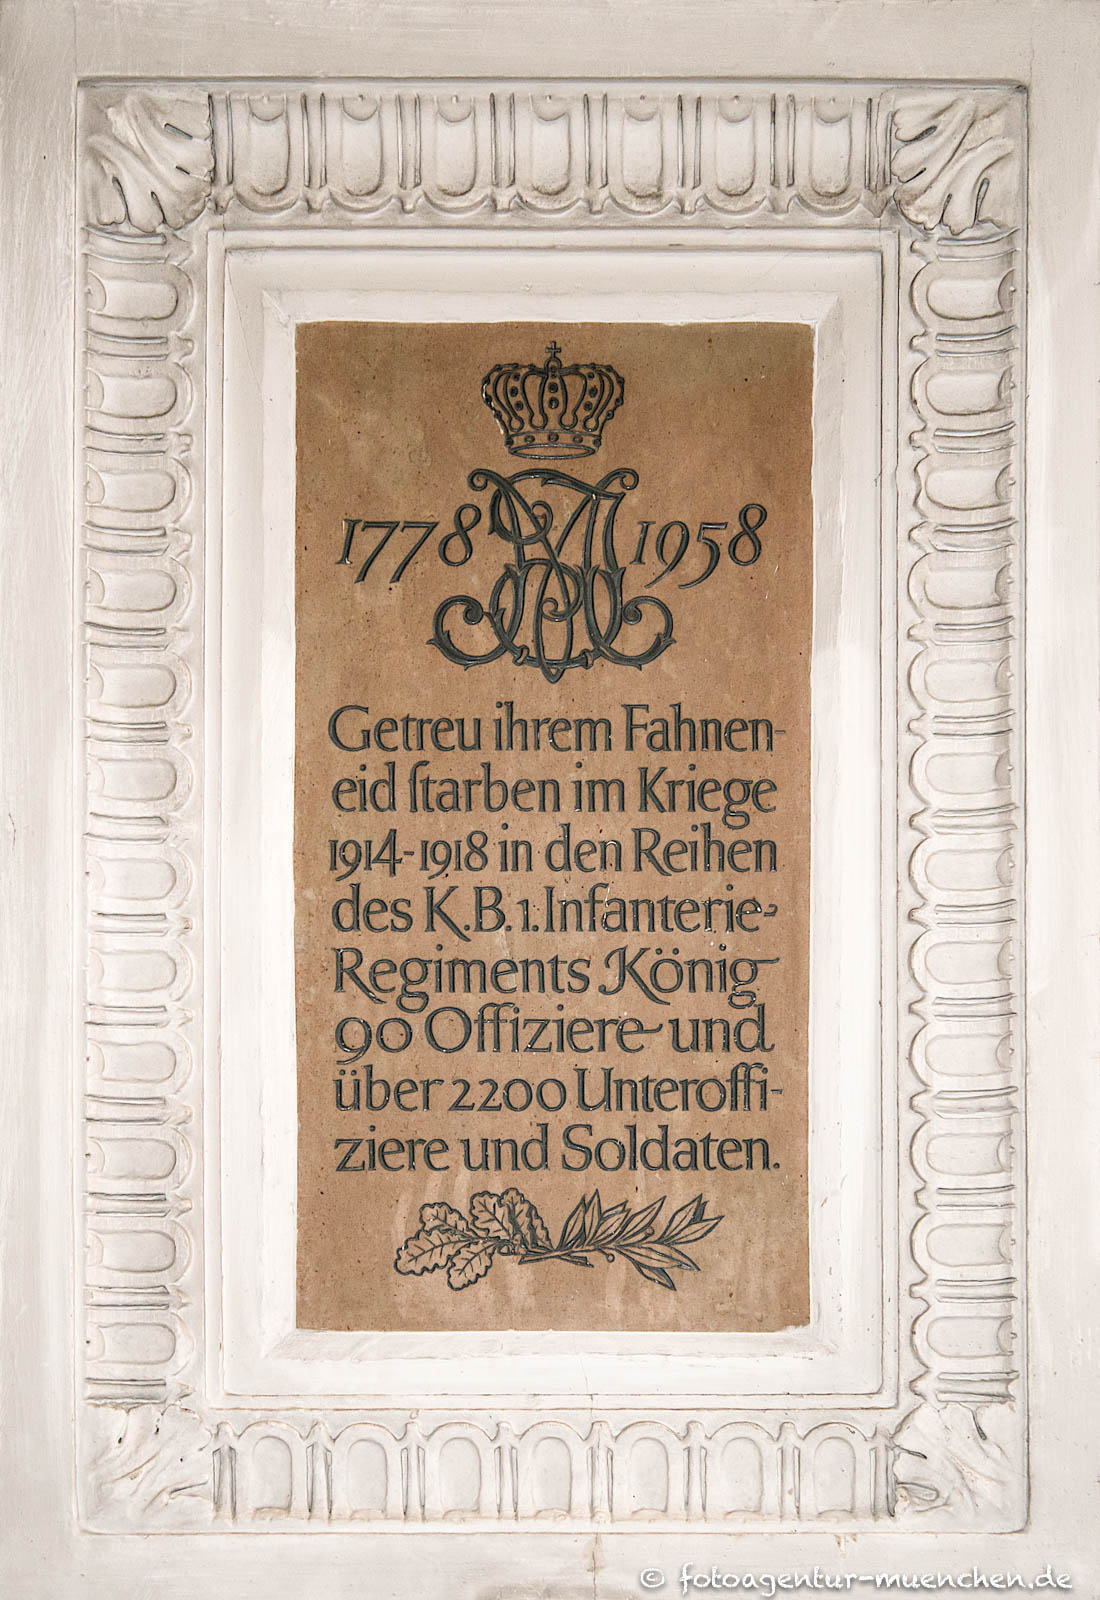 1778 1958
Getreu ihrem Fahnen-
eid ſtarben im Kriege
1914-1918 in den Reihen
des K.B.1.Infanterie-
Regiments König
90 Offiziere und
über 2200 Unteroffi-
ziere und Soldaten.
© fotoagentur-muenchen.de